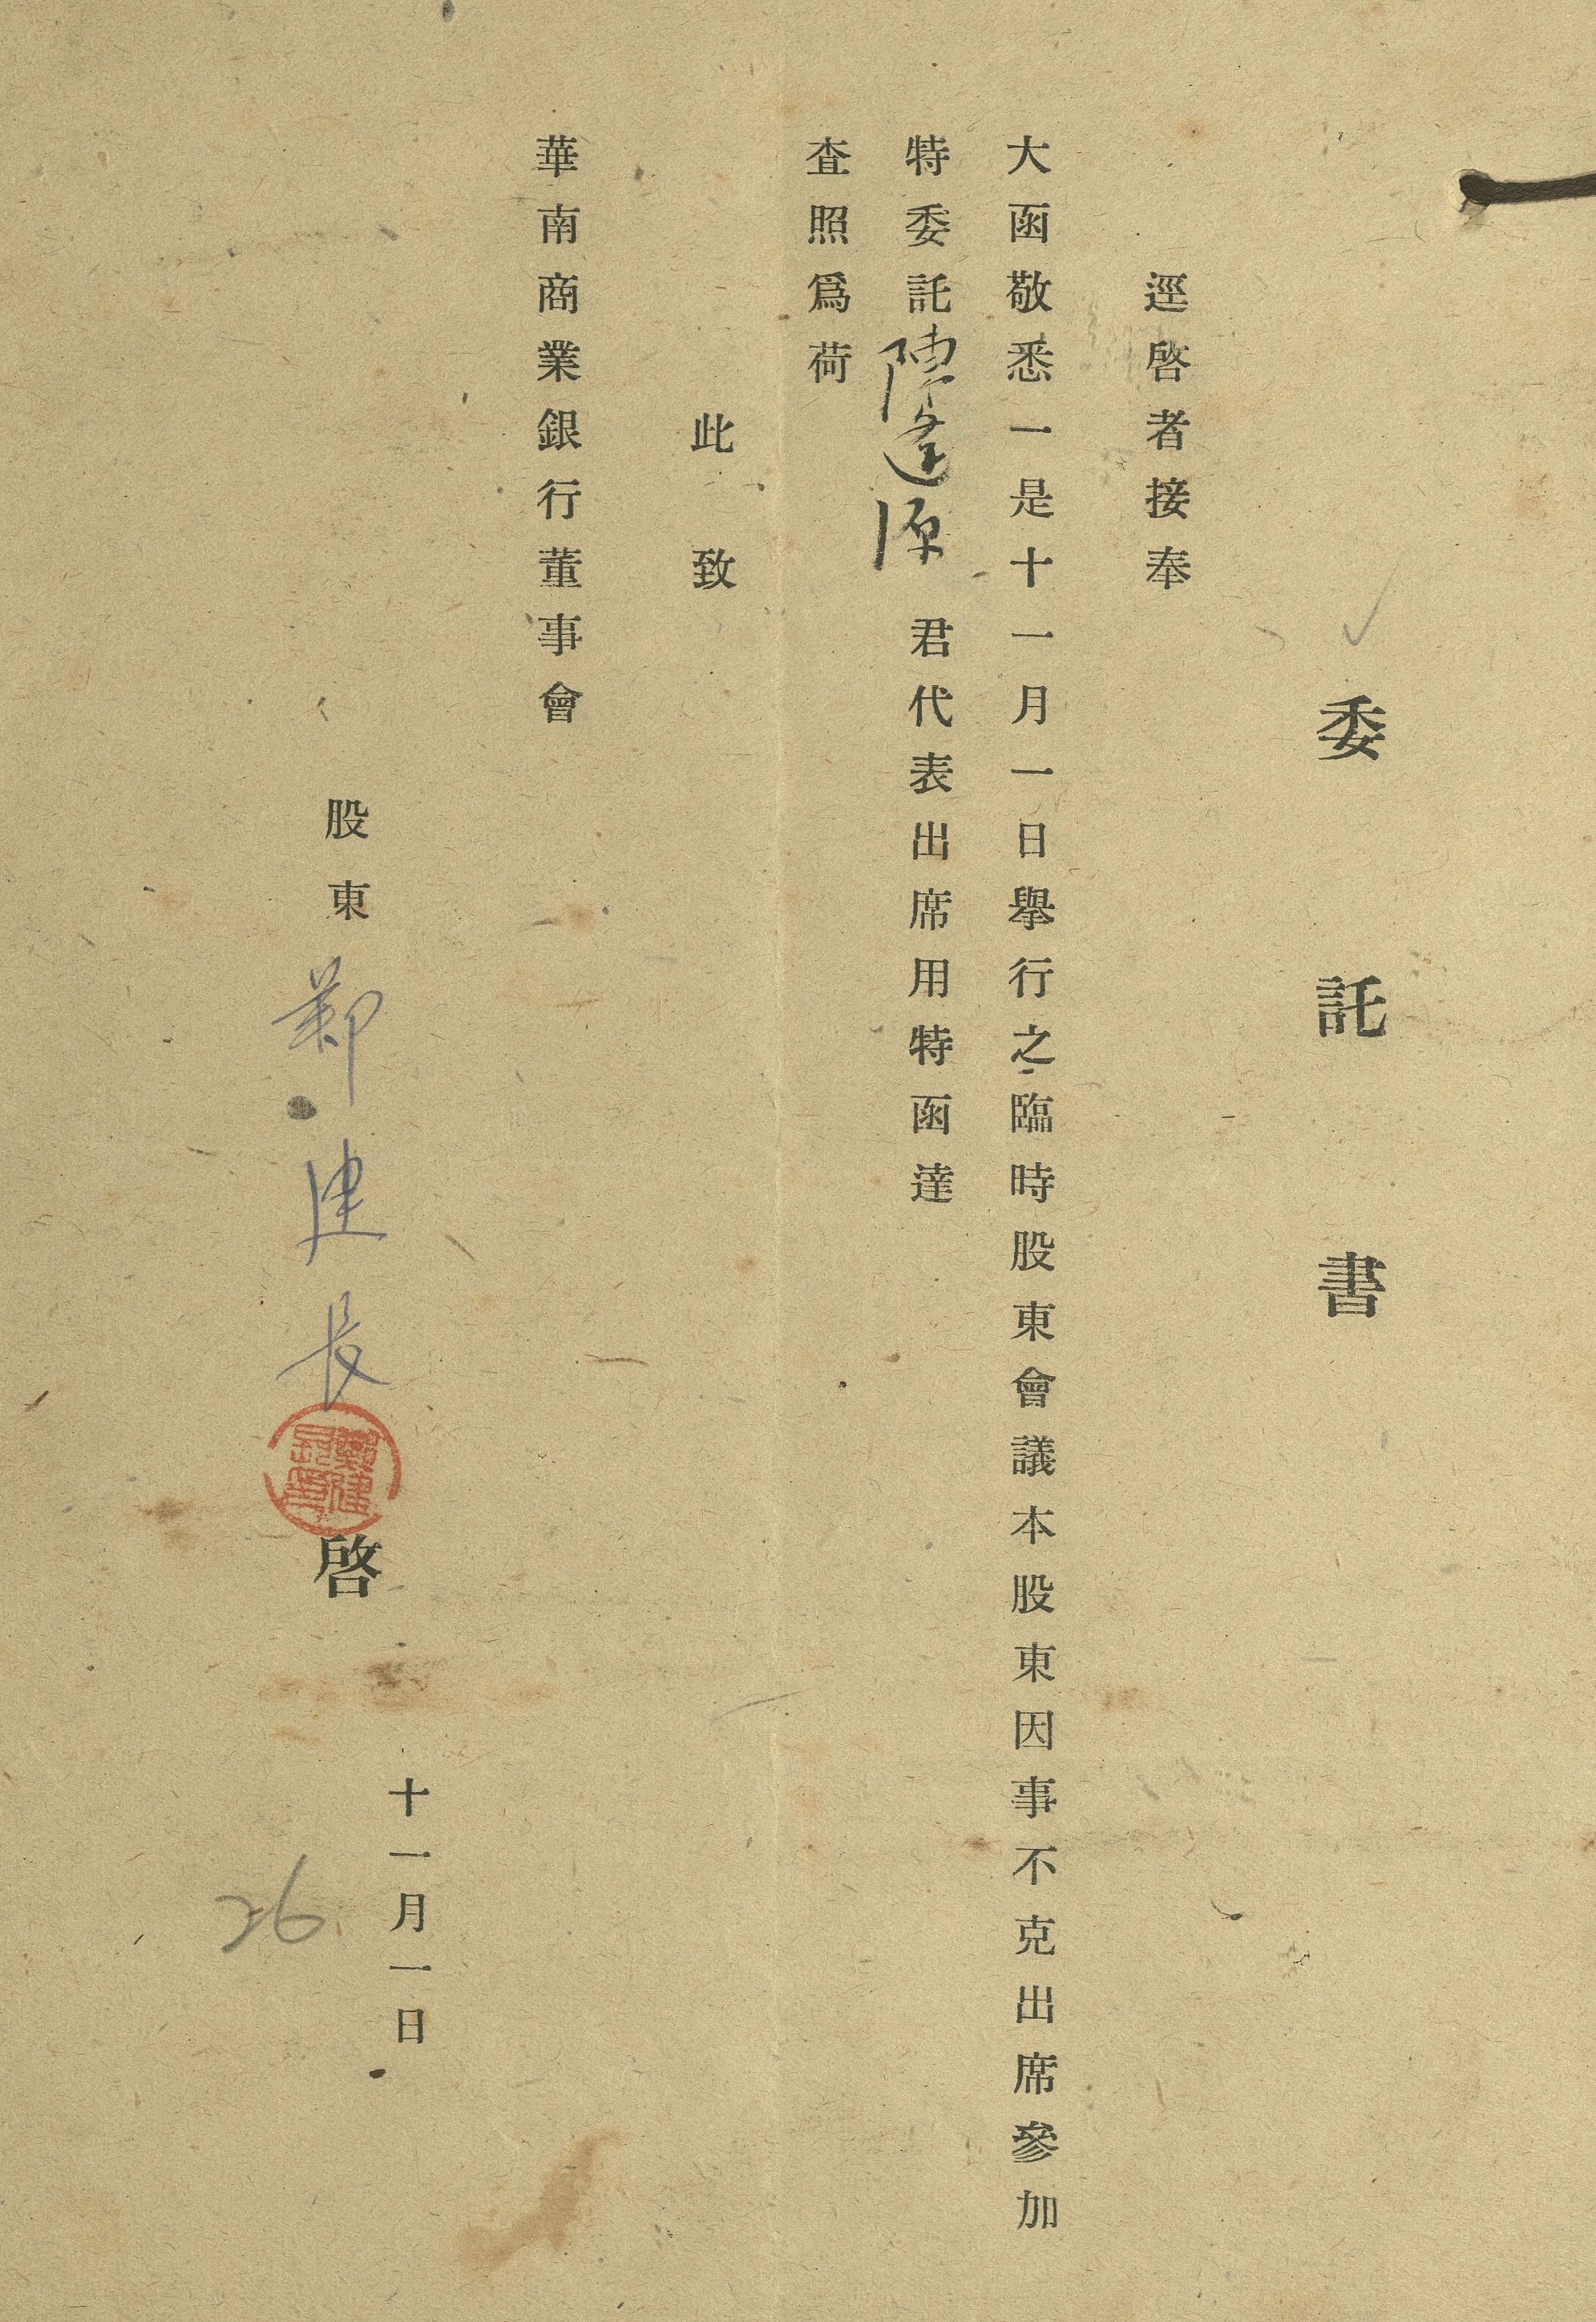 委託書
逕啓者接奉
大函敬悉一是十一月一日擧行之臨時股東會議本股東因事不克出席參加
特委託陳逢源君代表出席用特函達
査照爲荷
此致
華南商業銀行董事會
十一月一日
股東鄭建長啓
26